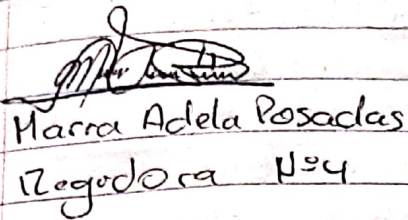 Maria Adela Posadas
Regidora Nº4